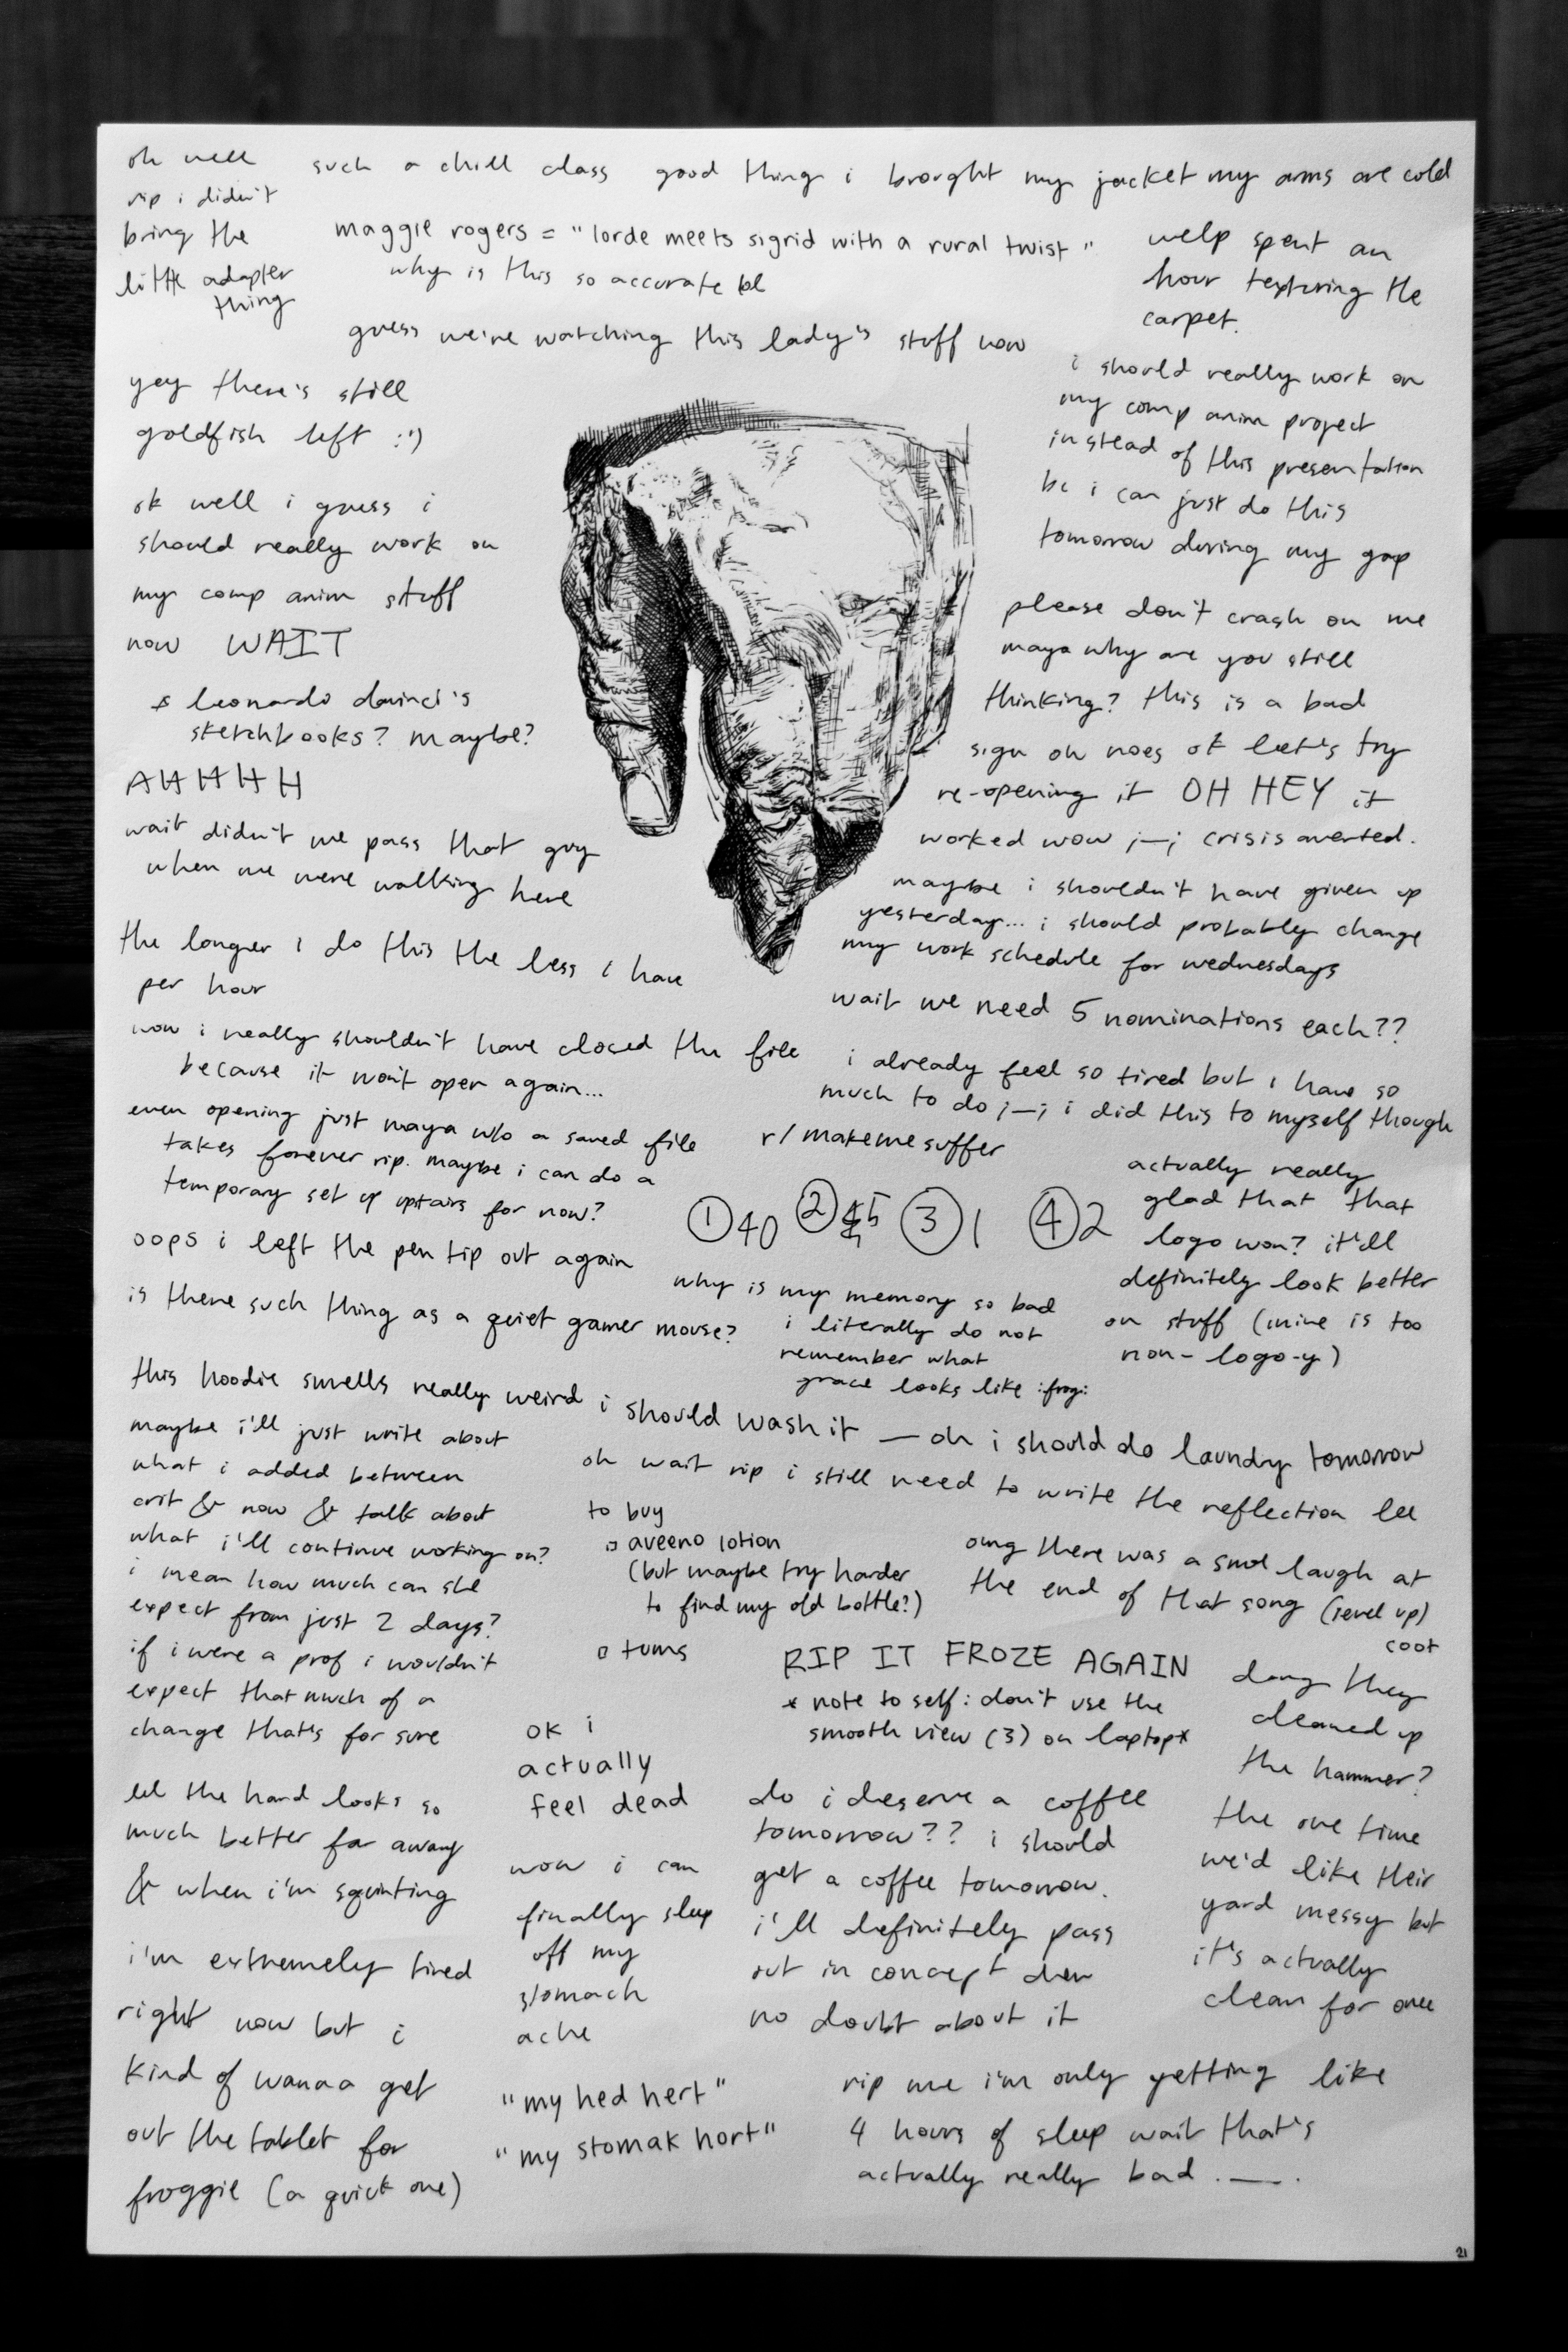 oh well
rip i didn't
bring the
little adapter
thing
such a chill class good thing i brought my jacket my arms are cold
maggie rogers = "lorde meets sigrid with a rural twist"
why is this so accurate lol
guess we're watching this lady's stuff now
welp spent an
hour texturing the
carpet.
yey there's still
goldfish left :')
ok well i guess i
should really work on
my comp anim stuff
now WAIT
* leonardo davinci's
sketchbooks? maybe?
AHHHH
wait didn't we pass that guy
when we were walking here
the longer i do this the less i have
per hour
i should really work on
my comp anim project
instead of this presentation
bc i can just do this
tomorrow during my gap
please don't crash on me
maya why are you still
thinking? this is a bad
sign oh noes ok let's try
re-opening it OH HEY it
worked wow ;—; crisis averted.
maybe i shouldn't have given up
yesterday... i should probably change
my work schedule for wednesdays
wait we need 5 nominations each??
now i really shouldn't have closed the file
because it won't open again...
even opening just maya w/o a saved file
takes forever rip. maybe i can do a
temporary set up upstairs for now?
oops i left the pen tip out again
is there such thing as a quiet gamer mouse?
i already feel so tired but i have so
much to do ;—; i did this to myself though
r/makemesuffer
① 40 ② 45 ③ 1 ④ 2
why is my memory so bad
i literally do not
remember what
grace looks like :frog:
actually really
glad that that
logo won? it'll
definitely look better
on stuff (mine is too
non-logo-y)
this hoodie smells really weird i should wash it — oh i should do laundry tomorrow
oh wait rip i still need to write the reflection lel
maybe i'll just write about
what i added between
crit & now & talk about
what i'll continue working on?
i mean how much can she
expect from just 2 days?
if i were a prof i wouldn't
expect that much of a
change that's for sure
to buy
▫ aveeno lotion
(but maybe try harder
to find my old bottle?)
▫ tums
omg there was a smol laugh at
the end of that song (level up)
coot
RIP IT FROZE AGAIN
* note to self: don't use the
smooth view (3) on laptop*
dang they
cleaned up
the hammer?
the one time
we'd like their
yard messy but
it's actually
clean for once
lel the hand looks so
much better far away
& when i'm squinting
i'm extremely tired
right now but i
kind of wanna get
out the tablet for
froggie (a quick one)
ok i
actually
feel dead
now i can
finally sleep
off my
stomach
ache
"my hed hert"
"my stomak hort"
do i deserve a coffee
tomorrow?? i should
get a coffee tomorrow.
i'll definitely pass
out in concept dev
no doubt about it
rip me i'm only getting like
4 hours of sleep wait that's
actually really bad .—.
21